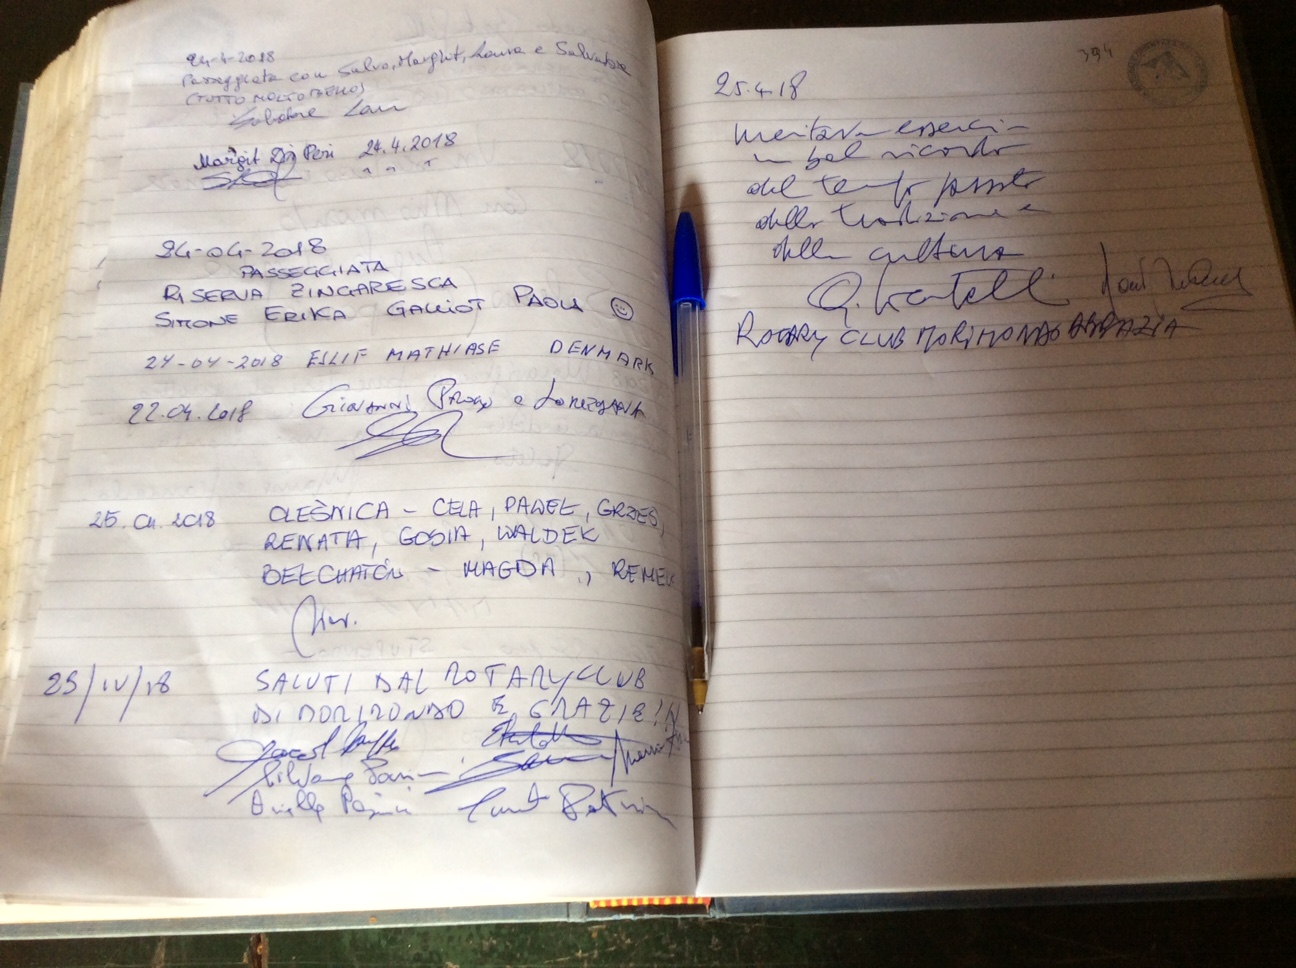 24-4-2018
Passeggiata con Salvo, Margit, Laura e Salvatore
(TUTTO MOLTO BELLO)
Salvatore
Margit Di Peri 24.4.2018
24-04-2018
PASSEGGIATA
RISERVA ZINGARESCA
SIMONE ERIKA GALLIOT PAOLA ☺
24-04-2018 ESLIF MATHIASE DENMARK
22.04.2018 GIOVANNI e
25.04.2018 OLEŚNICA - CELA, PAWEŁ, GRZEŚ,
RENATA, GOSIA, WALDEK
BEŁCHATÓW - MAGDA, REMEK
25/IV/18 SALUTI DAL ROTARY CLUB
DI MORIMONDO E GRAZIE!
394
25.4.18
meritava esserci
un bel ricordo
del tempo passato
della tradizione e
della cultura
ROTARY CLUB MORIMONDO ABBAZIA